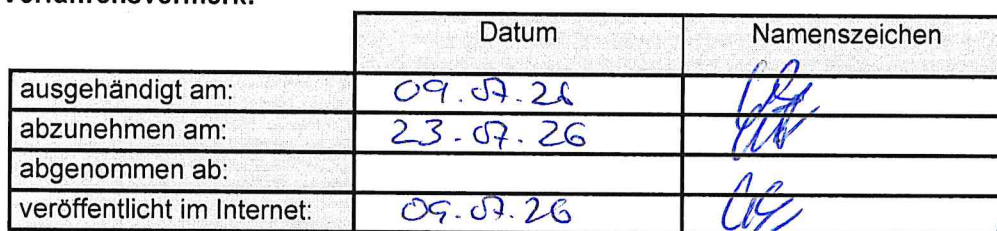 Datum Namenszeichen
ausgehändigt am: 09.07.26
abzunehmen am: 23.07.26
abgenommen ab:
veröffentlicht im Internet: 09.07.26